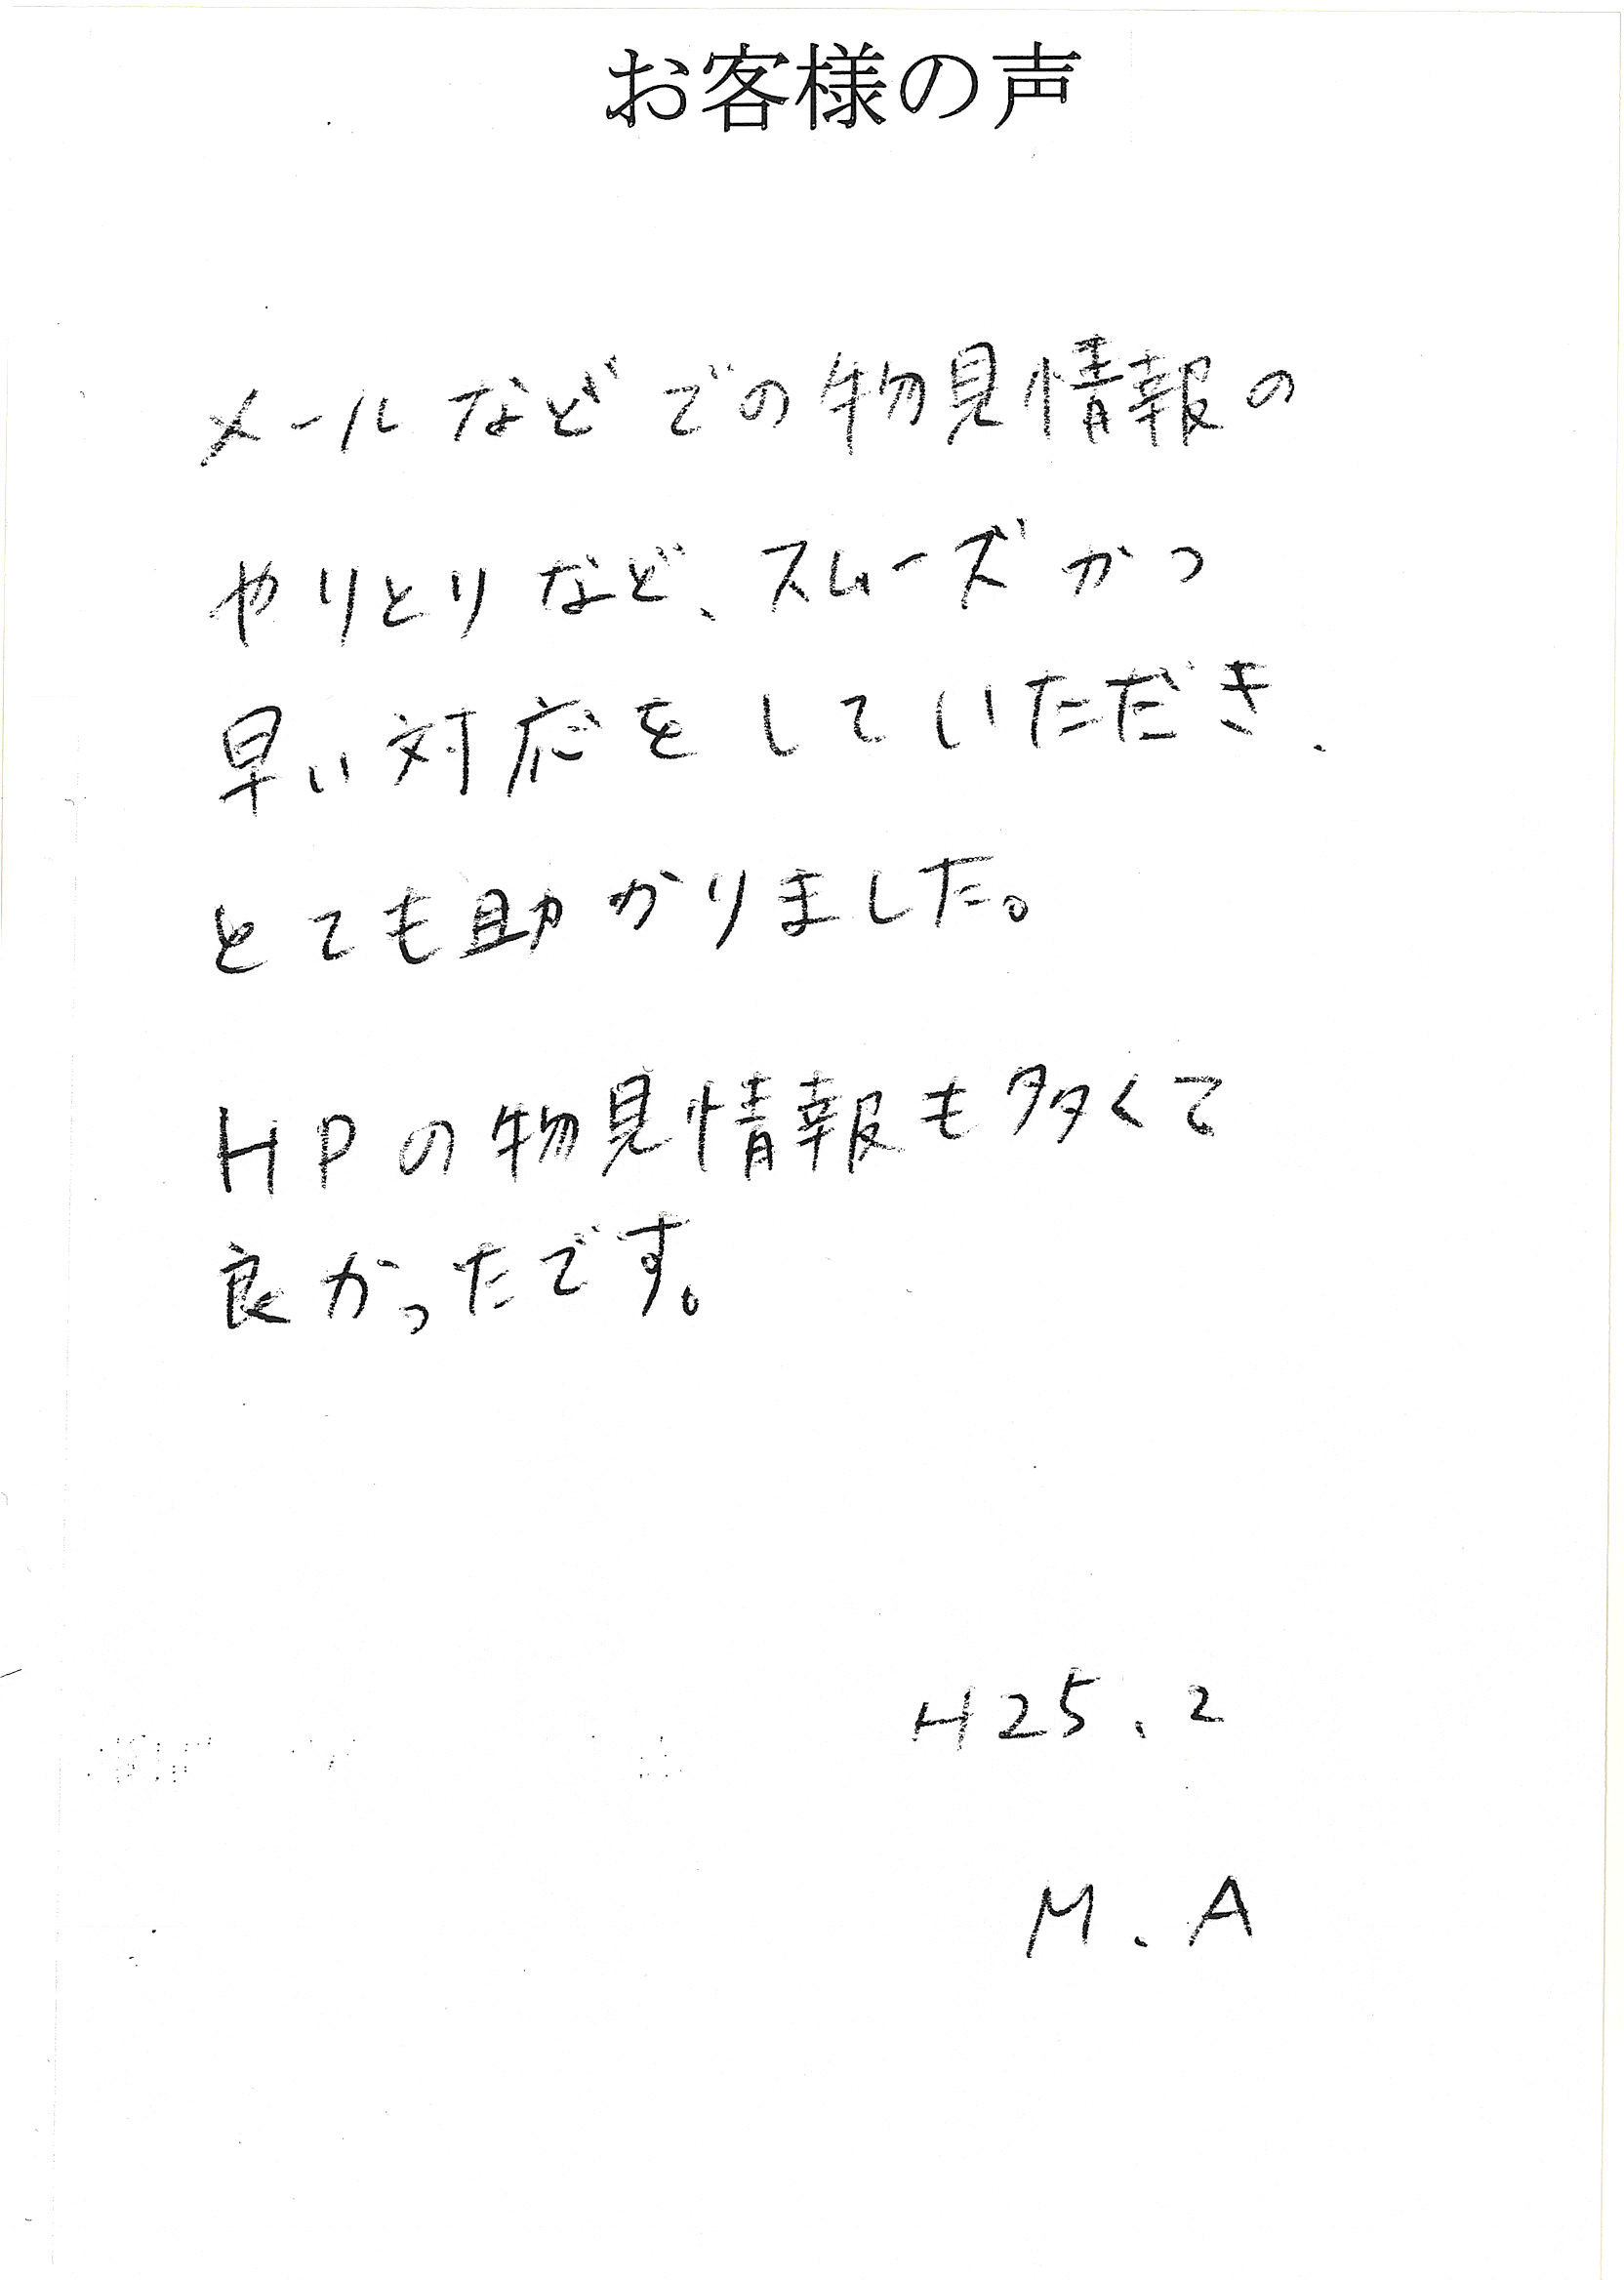 お客様の声
メールなどでの物見情報の
やりとりなど、スムーズかつ
早い対応をしていただき、
とても助かりました。
HPの物見情報も多くて
良かったです。
H25.2
M.A